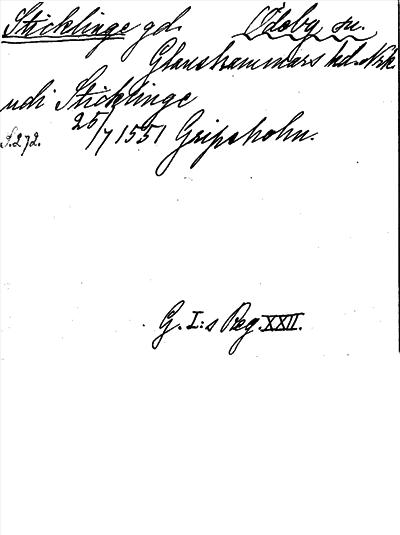 Sticklinge gd. Ödeby sn.
Glanshammars hd. Nrk.
udi Sticklinge
S. 272. 25/7 1551 Gripsholm.
G. I:s Reg. XXII.